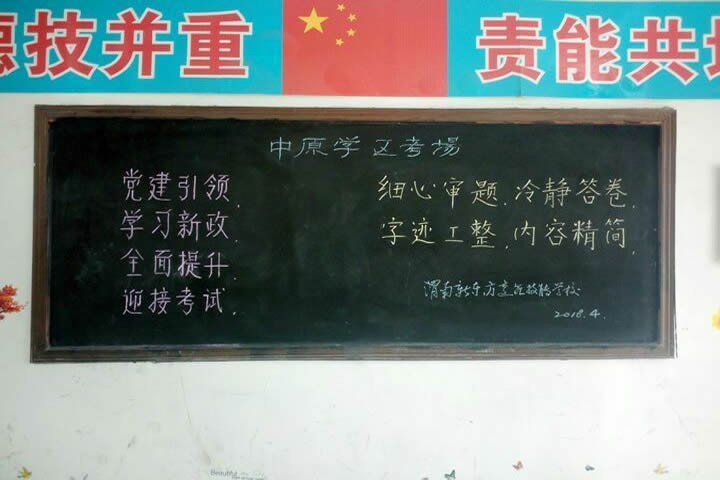 德技并重
责能共培
中原学区考場
党建引领.
学习新政.
全面提升.
迎接考试.
细心审题.冷静答卷.
字迹工整.内容精简.
渭南新东方烹饪技能学校
2018.4.
Beautiful